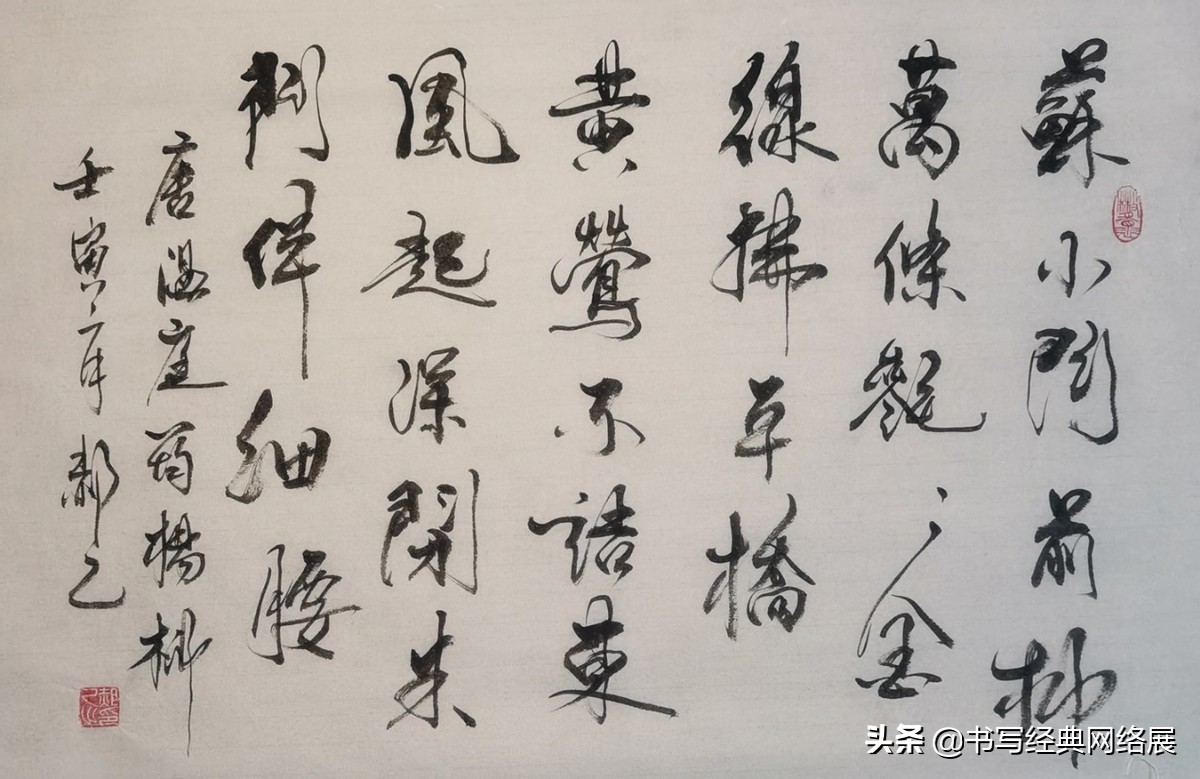 蘇小門前柳
萬條毿〻金
線拂平橋
黄鶯不語東
風起深閉朱
門伴細腰
唐温庭筠楊柳
壬寅年 郝
头条 @书写经典网络展